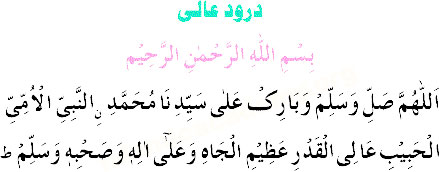 درود عالی
بِسْمِ اللهِ الرَّحْمٰنِ الرَّحِيْمِ
اَللّٰهُمَّ صَلِّ وَسَلِّمْ وَبَارِكْ عَلٰى سَيِّدِنَا مُحَمَّدِ نِ النَّبِيِّ الْاُمِّيِّ
الْحَبِيْبِ عَالِى الْقَدْرِ عَظِيْمِ الْجَاهِ وَعَلٰٓى اٰلِهٖ وَصَحْبِهٖ وَسَلِّمْ ط